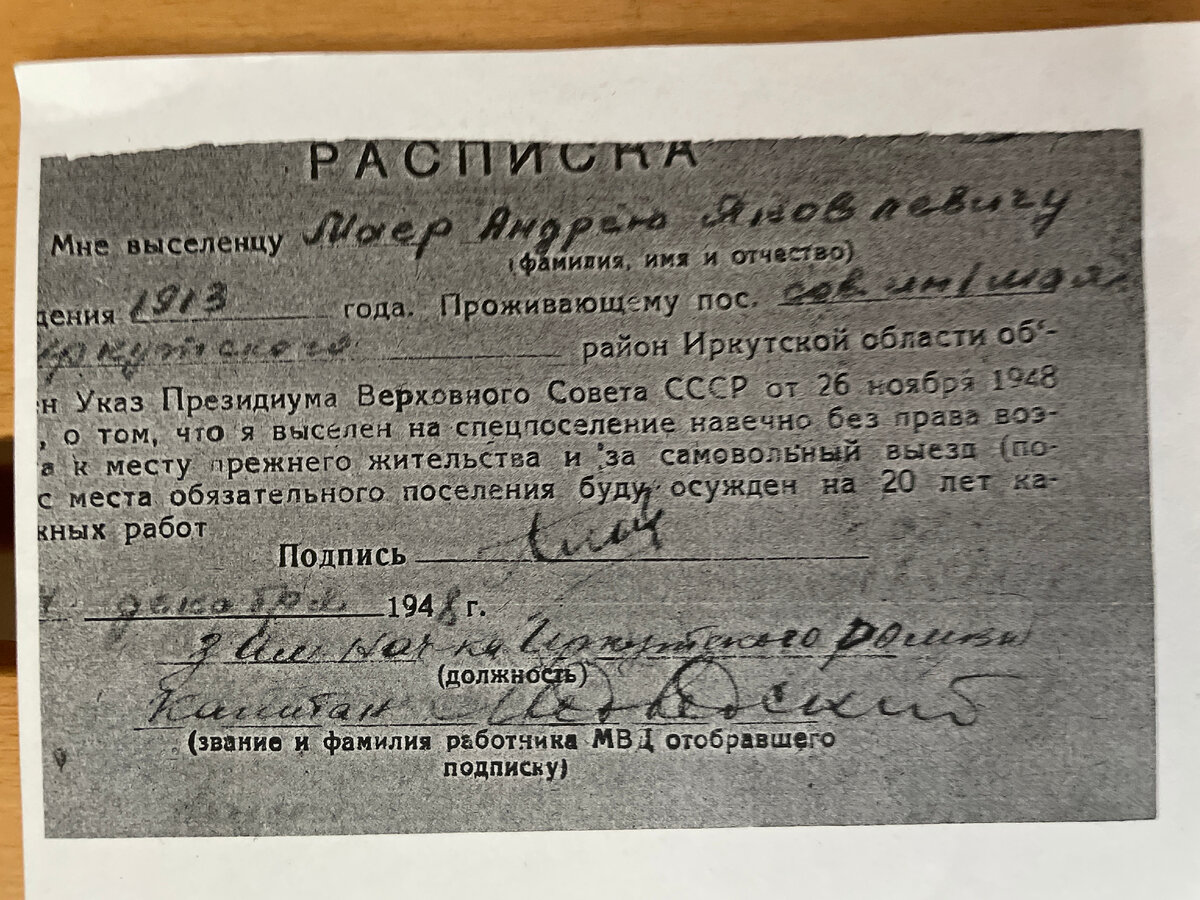 РАСПИСКА
Мне выселенцу Маер Андрею Яковлевичу
(фамилия, имя и отчество)
дения 1913 года. Проживающему пос.
Иркутского район Иркутской области об'-
н Указ Президиума Верховного Совета СССР от 26 ноября 1948
, о том, что я выселен на спецпоселение навечно без права воз-
а к месту прежнего жительства и за самовольный выезд (по-
с места обязательного поселения буду осужден на 20 лет ка-
жных работ
Подпись
декабря 1948 г.
Зам нач-ка Иркутского
(должность)
Капитан
(звание и фамилия работника МВД отобравшего
подписку)